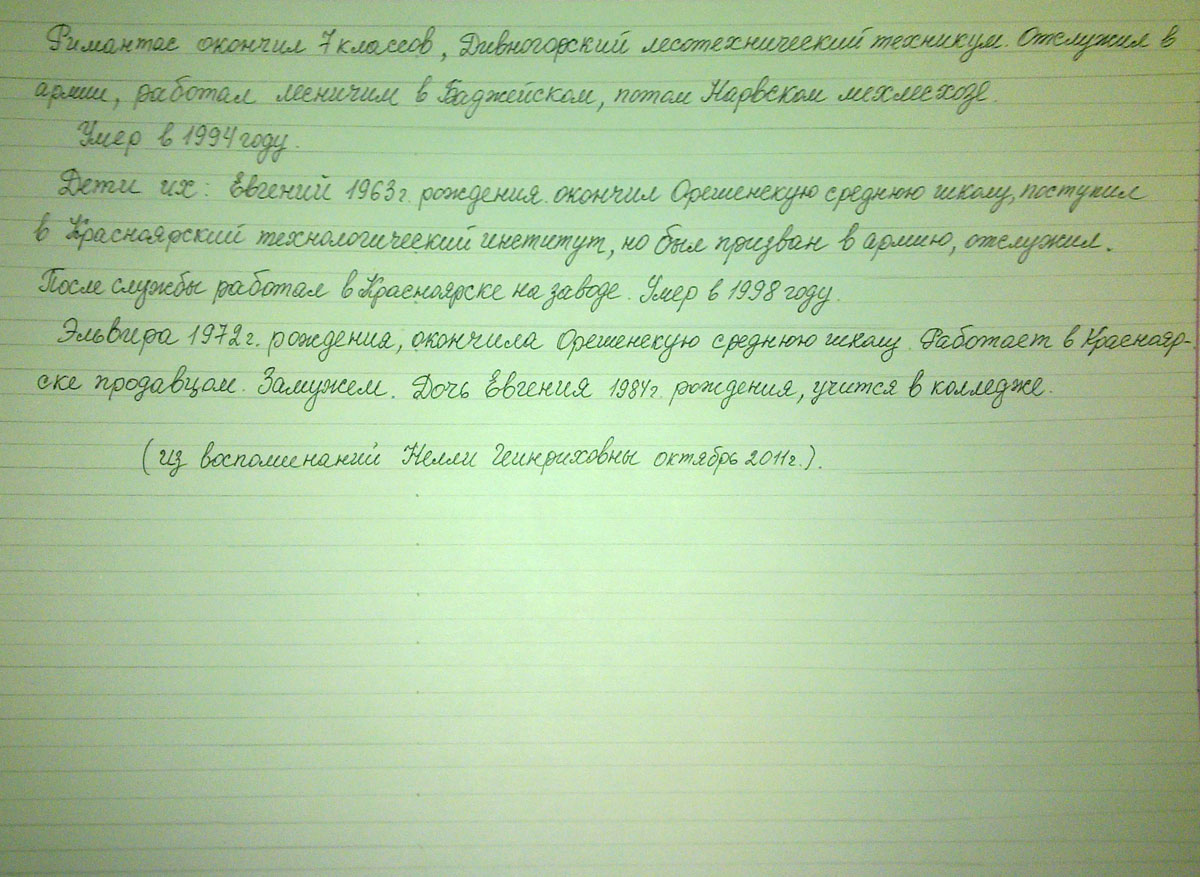 Римантас окончил 7 классов, Дивногорский лесотехнический техникум. Отслужил в
армии, работал лесничим в Баджейском, потом Нарвском мехлесхозе.
Умер в 1994 году.
Дети их: Евгений 1963г. рождения. окончил Орешенскую среднюю школу, поступил
в Красноярский технологический институт, но был призван в армию, отслужил.
После службы работал в Красноярске на заводе. Умер в 1998 году.
Эльвира 1972г. рождения, окончила Орешенскую среднюю школу. Работает в Краснояр-
ске продавцом. Замужем. Дочь Евгения 1984г. рождения, учится в колледже.
(из воспоминаний Нелли Генриховны октябрь 2011г.).